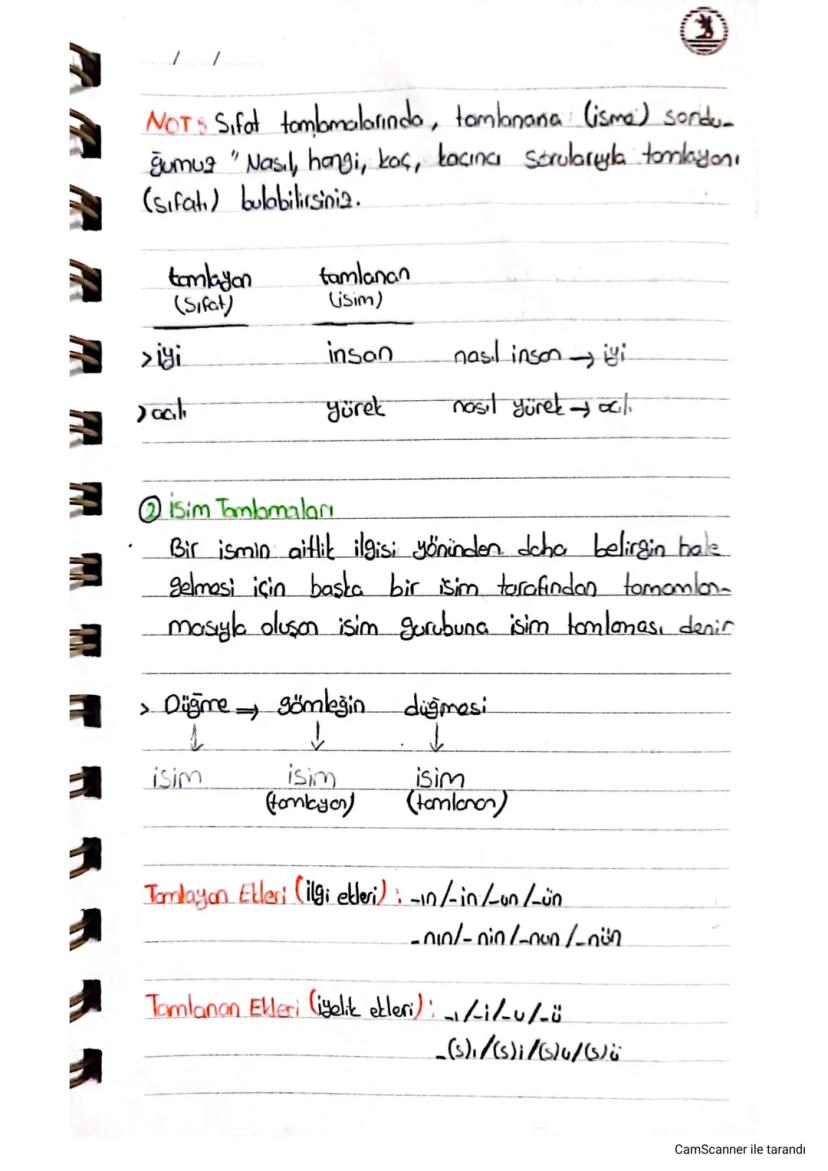 / /
NOT: Sıfat tamlamalarında, tamlanana (isme) sordu-
ğumuz "Nasıl, hangi, kaç, kaçıncı sorularıyla tamlayanı
(sıfatı) bulabilirsiniz.
tamlayan tamlanan
(sıfat) (isim)
> iyi insan nasıl insan → iyi
> acılı yürek nasıl yürek → acılı
② İsim Tamlamaları
• Bir ismin aitlik ilgisi yöninden daha belirgin hale
gelmesi için başka bir isim tarafından tamamlan-
masıyla oluşan isim gurubuna isim tamlaması denir
> Düğme → gömleğin düğmesi
↓ ↓ ↓
isim isim isim
(tamlayan) (tamlanan)
Tamlayan Ekleri (ilgi ekleri) : -ın/-in/-un/-ün
-nın/-nin/-nun/-nün
Tamlanan Ekleri (iyelik ekleri) : -ı/-i/-u/-ü
-(s)ı/(s)i/(s)u/(s)ü
CamScanner ile tarandı